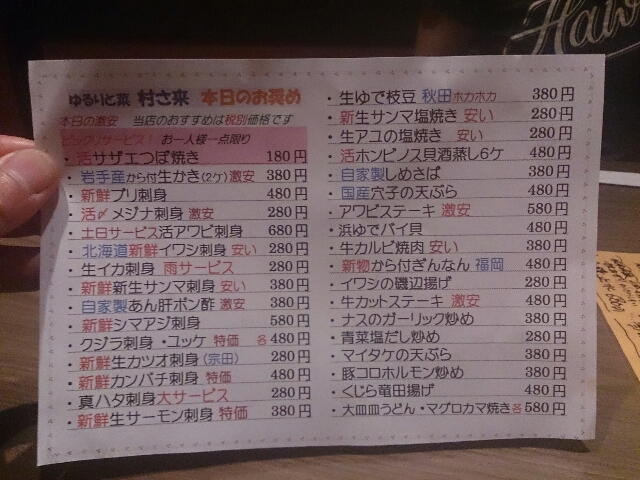 ゆるりと菜 村さ来 本日のお奨め
本日の激安 当店のおすすめは税別価格です
ビックリサービス！ お一人様一点限り
・活サザエつぼ焼き 180円
・岩手産から付生かき(2ケ)激安 380円
・新鮮ブリ刺身 480円
・活〆メジナ刺身 激安 280円
・土日サービス活アワビ刺身 680円
・北海道新鮮イワシ刺身 安い 280円
・生イカ刺身 雨サービス 280円
・新鮮新生サンマ刺身 安い 380円
・自家製あん肝ポン酢 激安 380円
・新鮮シマアジ刺身 580円
・クジラ刺身・ユッケ 特価 各480円
・新鮮生カツオ刺身(宗田) 280円
・新鮮カンパチ刺身 特価 480円
・真ハタ刺身大サービス 280円
・新鮮生サーモン刺身 特価 380円
・生ゆで枝豆 秋田ホカホカ 380円
・新生サンマ塩焼き 安い 280円
・生アユの塩焼き 安い 280円
・活ホンビノス貝酒蒸し6ケ 480円
・自家製しめさば 380円
・国産穴子の天ぷら 480円
・アワビステーキ 激安 580円
・浜ゆでバイ貝 480円
・牛カルビ焼肉 安い 380円
・新物から付ぎんなん 福岡 480円
・イワシの磯辺揚げ 280円
・牛カットステーキ 激安 480円
・ナスのガーリック炒め 380円
・青菜塩だし炒め 380円
・マイタケの天ぷら 380円
・豚コロホルモン炒め 380円
・くじら竜田揚げ 480円
・大皿皿うどん・マグロカマ焼き各580円